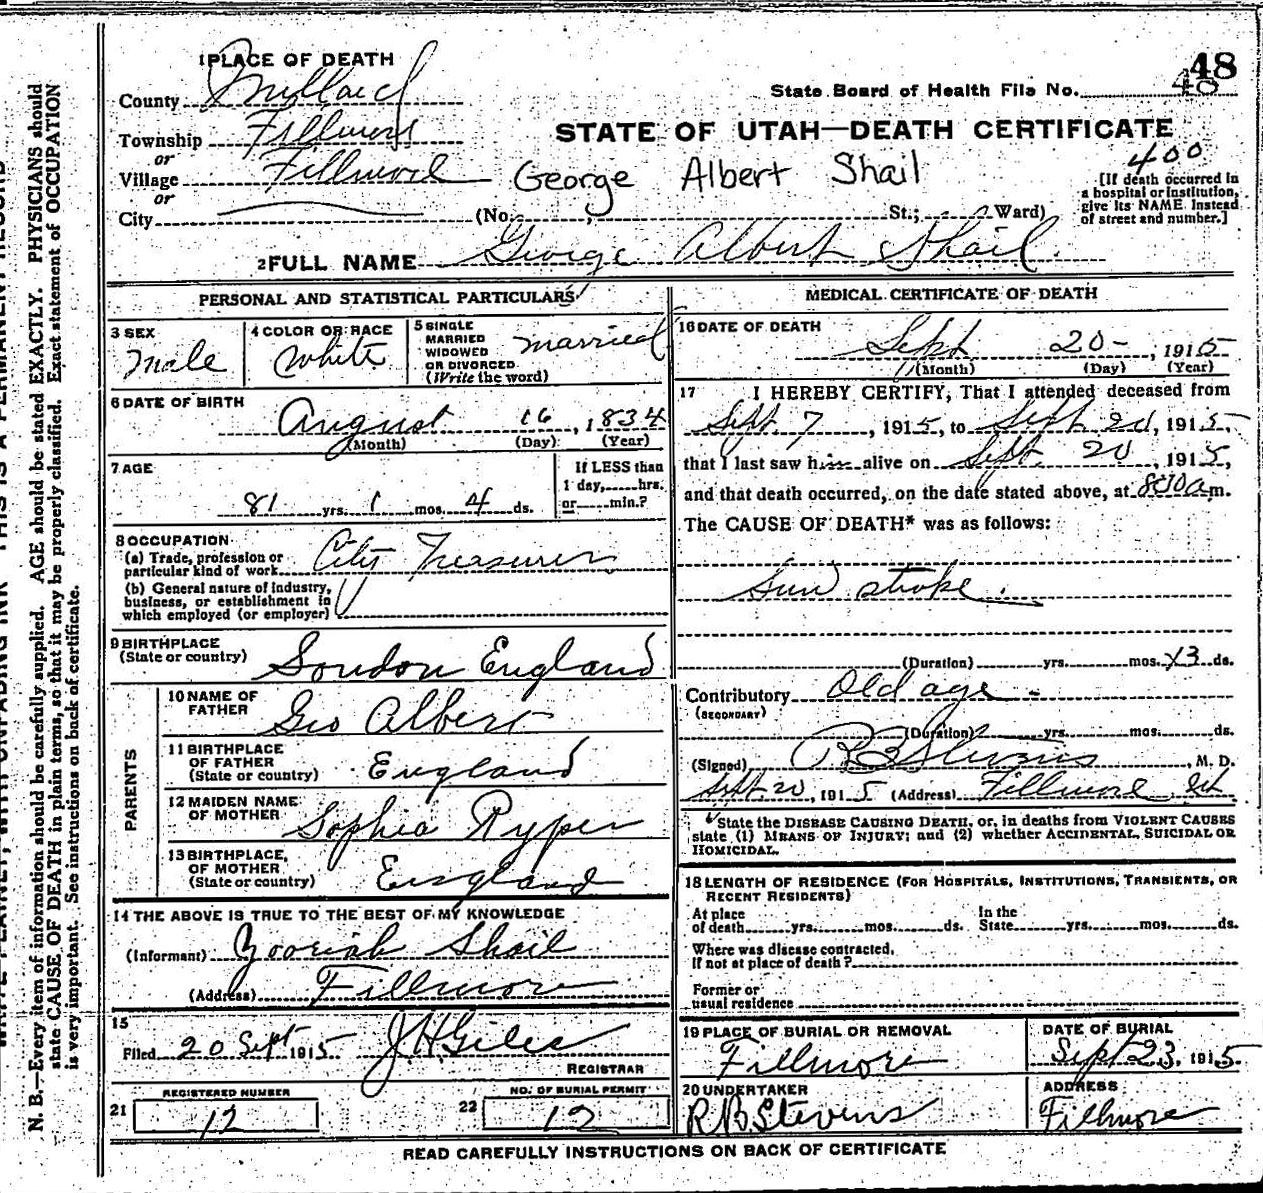 48
1 PLACE OF DEATH
County Millard
State Board of Health File No. 48
Township Fillmore
STATE OF UTAH—DEATH CERTIFICATE
or
Village Fillmore
George Albert Shail
400
or
[If death occurred in a hospital or institution, give its NAME instead of street and number.]
City (No. St.; Ward)
2 FULL NAME George Albert Shail
PERSONAL AND STATISTICAL PARTICULARS
3 SEX Male
4 COLOR OR RACE White
5 SINGLE MARRIED WIDOWED OR DIVORCED (Write the word) married
6 DATE OF BIRTH August 16, 1834
(Month) (Day) (Year)
7 AGE
81 yrs. 1 mos. 4 ds.
If LESS than 1 day, hrs. or min.?
8 OCCUPATION
(a) Trade, profession or particular kind of work City Treasurer
(b) General nature of industry, business, or establishment in which employed (or employer)
9 BIRTHPLACE (State or country) London England
PARENTS
10 NAME OF FATHER Geo Albert
11 BIRTHPLACE OF FATHER (State or country) England
12 MAIDEN NAME OF MOTHER Sophia
13 BIRTHPLACE OF MOTHER (State or country) England
14 THE ABOVE IS TRUE TO THE BEST OF MY KNOWLEDGE
(Informant) Shail
(Address) Fillmore
15
Filed 20 Sept 1915 J H Giles
REGISTRAR
21 REGISTERED NUMBER 12
22 NO. OF BURIAL PERMIT 12
MEDICAL CERTIFICATE OF DEATH
16 DATE OF DEATH
Sept 20-, 1915
(Month) (Day) (Year)
17 I HEREBY CERTIFY, That I attended deceased from
Sept. 7, 1915, to Sept. 20, 1915,
that I last saw him alive on Sept. 20, 1915,
and that death occurred, on the date stated above, at m.
The CAUSE OF DEATH* was as follows:
Sun stroke.
(Duration) yrs. mos. 13 ds.
Contributory Old age -
(SECONDARY)
(Duration) yrs. mos. ds.
(Signed) R B Stevens, M. D.
Sept. 20, 1915 (Address) Fillmore Ut
*State the DISEASE CAUSING DEATH, or, in deaths from VIOLENT CAUSES
state (1) MEANS OF INJURY; and (2) whether ACCIDENTAL, SUICIDAL OR
HOMICIDAL.
18 LENGTH OF RESIDENCE (FOR HOSPITALS, INSTITUTIONS, TRANSIENTS, OR
RECENT RESIDENTS)
At place of death yrs. mos. ds. In the State yrs. mos. ds.
Where was disease contracted,
If not at place of death?
Former or
usual residence
19 PLACE OF BURIAL OR REMOVAL Fillmore
DATE OF BURIAL Sept 23, 1915
20 UNDERTAKER R B Stevens
ADDRESS Fillmore
READ CAREFULLY INSTRUCTIONS ON BACK OF CERTIFICATE
N. B.—Every item of information should be carefully supplied. AGE should be stated EXACTLY. PHYSICIANS should
state CAUSE OF DEATH in plain terms, so that it may be properly classified. Exact statement of OCCUPATION
is very important. See instructions on back of certificate.